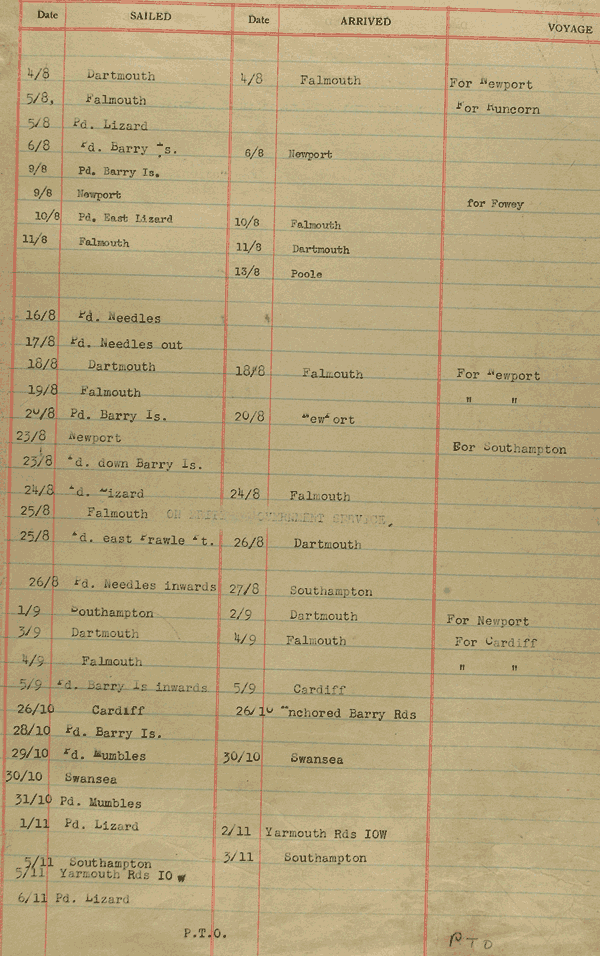 Date SAILED Date ARRIVED VOYAGE
4/8 Dartmouth 4/8 Falmouth For Newport
5/8. Falmouth For Runcorn
5/8 Pd. Lizard
6/8 Pd. Barry Is. 6/8 Newport
9/8 Pd. Barry Is.
9/8 Newport for Fowey
10/8 Pd. East Lizard 10/8 Falmouth
11/8 Falmouth 11/8 Dartmouth
13/8 Poole
16/8 Pd. Needles
17/8 Pd. Needles out
18/8 Dartmouth 18/8 Falmouth For Newport
19/8 Falmouth " "
20/8 Pd. Barry Is. 20/8 Newport
23/8 Newport For Southampton
23/8 Pd. down Barry Is.
24/8 Pd. Lizard 24/8 Falmouth
25/8 Falmouth ON GOVERNMENT SERVICE.
25/8 Pd. east Prawle Pt. 26/8 Dartmouth
26/8 Pd. Needles inwards 27/8 Southampton
1/9 Southampton 2/9 Dartmouth For Newport
3/9 Dartmouth 4/9 Falmouth For Cardiff
4/9 Falmouth " "
5/9 Pd. Barry Is inwards 5/9 Cardiff
26/10 Cardiff 26/10 Anchored Barry Rds
28/10 Pd. Barry Is.
29/10 Pd. Mumbles 30/10 Swansea
30/10 Swansea
31/10 Pd. Mumbles
1/11 Pd. Lizard 2/11 Yarmouth Rds IOW
5/11 Southampton 3/11 Southampton
5/11 Yarmouth Rds IOW
6/11 Pd. Lizard
P.T.O. PTO